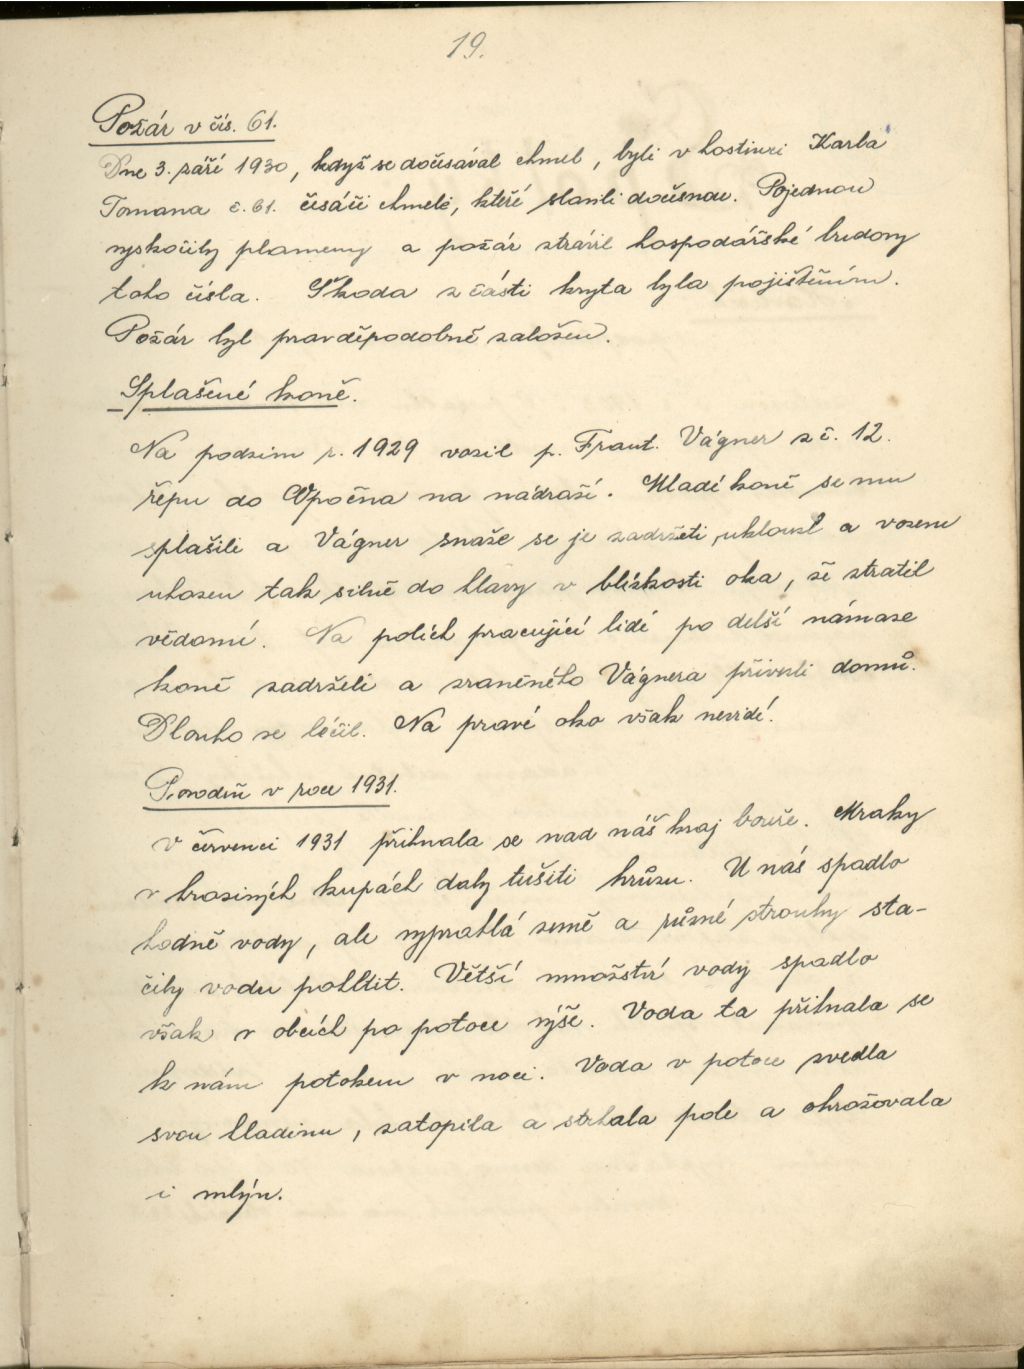 19.
Požár v čís. 61.
Dne 3. září 1930, když se dočesával chmel, byli v hostinci Karla
Tomana č. 61. česáči chmele, kteří slavili dočesnou. Pojednou
vyskočily plameny a požár strávil hospodářské budovy
toho čísla. Škoda z části kryta byla pojištěním.
Požár byl pravděpodobně založen.
Splašené koně.
Na podzim r. 1929 vozil p. Frant. Vágner z č. 12.
řepu do Opočna na nádraží. Mladé koně se mu
splašili a Vágner snaže se je zadržeti, uklouzl a vozem
uhozen tak silně do hlavy v blízkosti oka, že ztratil
vědomí. Na polích pracující lidé po delší námaze
koně zadrželi a zraněného Vágnera přivezli domů.
Dlouho se léčil. Na pravé oko však nevidí.
Povodeň v roce 1931.
V červenci 1931 přihnala se nad náš kraj bouře. Mraky
v hrozivých kupách daly tušiti hrůzu. U nás spadlo
hodně vody, ale vyprahlá země a různé strouhy sta-
čily vodu pohltit. Větší množství vody spadlo
však v obcích po potoce výše. Voda ta přihnala se
k nám potokem v noci. Voda v potoce zvedla
svou hladinu, zatopila a strhala pole a ohrožovala
i mlýn.